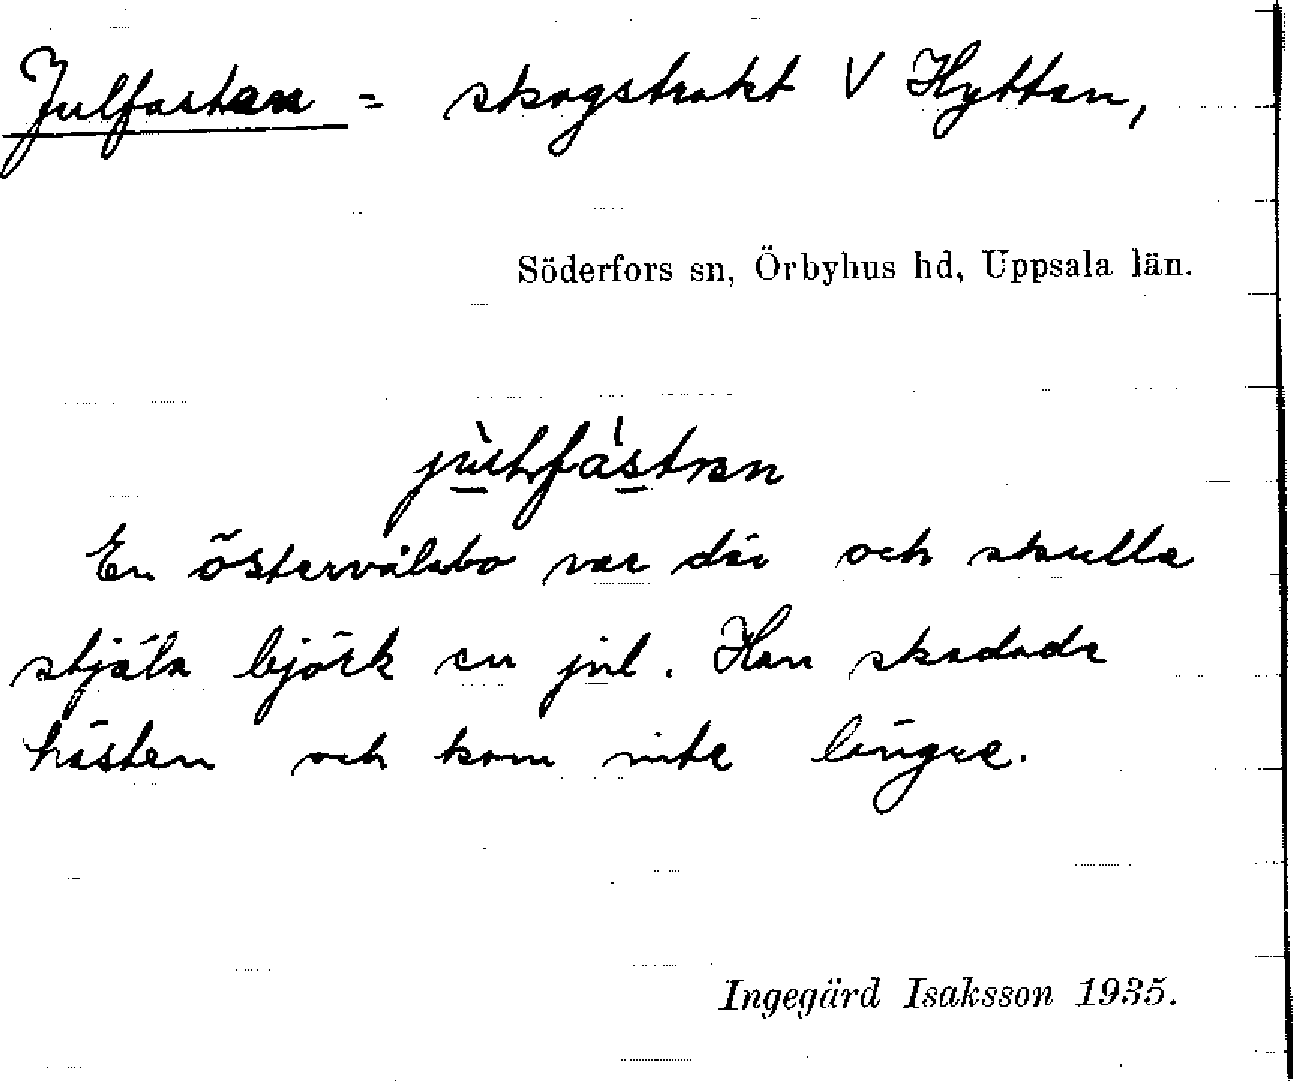 Julfastan = skogstrakt V Hyttan,
Söderfors sn, Örbyhus hd, Uppsala län.
En östervålabo var där och skulle
stjäla björk en jul. Han skadade
hästen och kom inte längre.
Ingegärd Isaksson 1935.